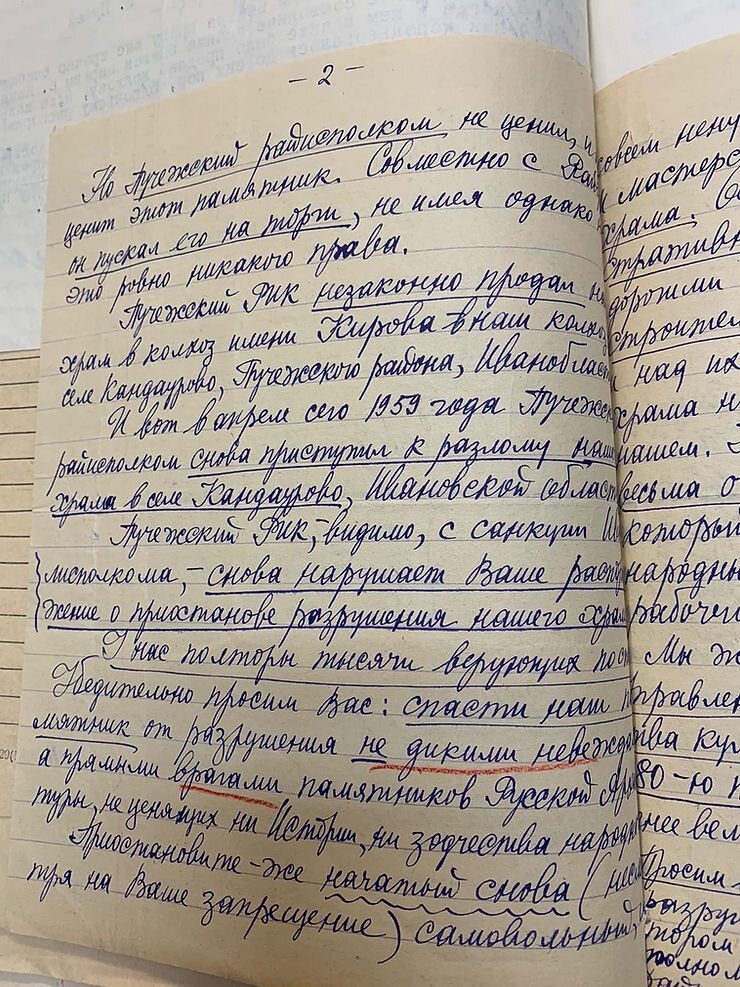 – 2 –
Но Пучежский райисполком не ценил, и
ценит этот памятник. Совместно с Рай
он пускал его на торги, не имея однако
это ровно никакого права.
Пучежский РИК незаконно продал на
храм в колхоз имени Кирова в наш колхоз
селе Кандаурово, Пучежского района, Иванобласт
И вот в апреле сего 1959 года Пучежск
райисполком снова приступил к разлому наше
храма в селе Кандаурово, Ивановской област
Пучежский РИК, – видимо, с санкции Ив
лисполкома, – снова нарушает Ваше распо
жение о приостанове разрушения нашего храм
У нас полторы тысячи верующих пост
Убедительно просим Вас: спасти наш п
мятник от разрушения не дикими невежда
а прямыми врагами памятников Русской Архи
туры, не ценящих ни Истории, ни зодчества народн
Приостановите-же начатый снова (несм
тря на Ваше запрещение) самовольный,
совсем нену
и мастерс
храма.
стративн
дорожили
строител
над их
храма н
нашем.
весьма о
который
народны
рабочи
Мы ж
управлен
ва кул
80-ю
нее вел
Просим
разру
тором
полном